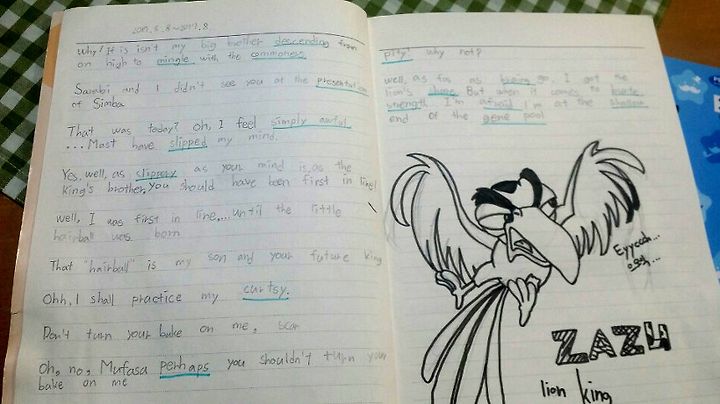 2017. 5. 8 ~ 2017. 8
Why! It is isn't my big brother descending from
on high to mingle with the commoness
Sarabi and I didn't see you at the presentation
of Simba
That was today? oh, I feel simply awful
...Mast have slipped my mind.
Yes, well, as slippery as your mind is, as the
king's brother, you should have been first in line!
well, I was first in line,... until the little
hairball was born
That "hairball" is my son and your future king
Ohh, I shall practice my curtsy.
Don't turn your bake on me, scar
Oh, no, Mufasa perhaps you shouldn't turn your
bake on me
pity! why not?
well, as far as go, I got the
lion's share But when it comes to brute
strength, I'm afraid I'm at the shallow
end of the gene pool
Eyyeeah...
ogg,...
ZAZU
lion king